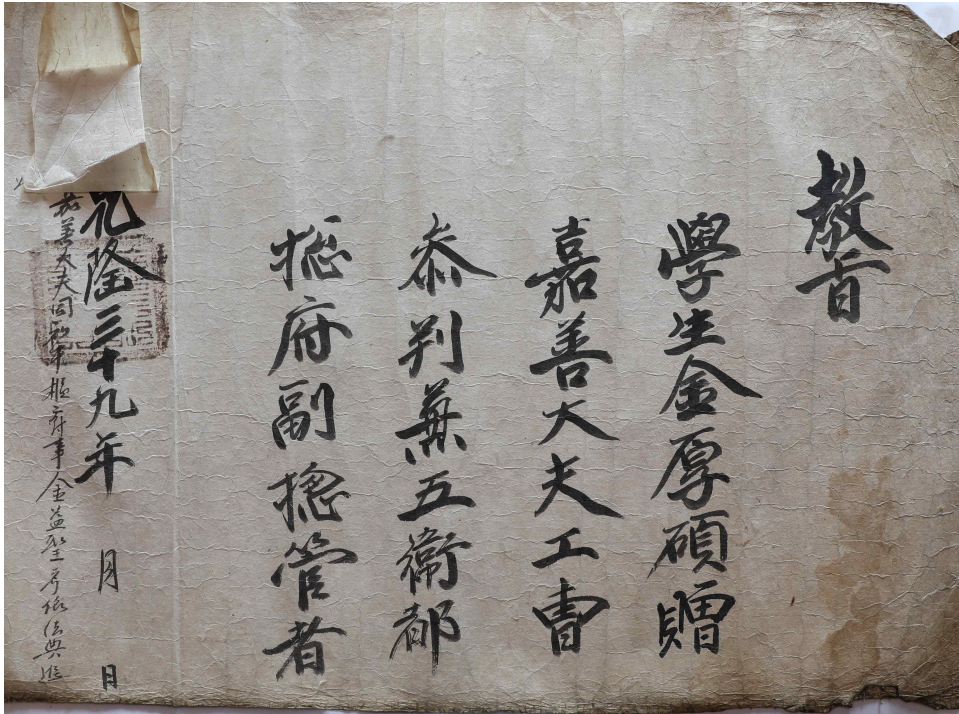 教旨
學生金厚碩贈
嘉善大夫工曹
叅判兼五衛都
捴府副捴管者
乾隆三十九年 月 日
嘉善大夫同知中樞府事金益聖 考依法典追